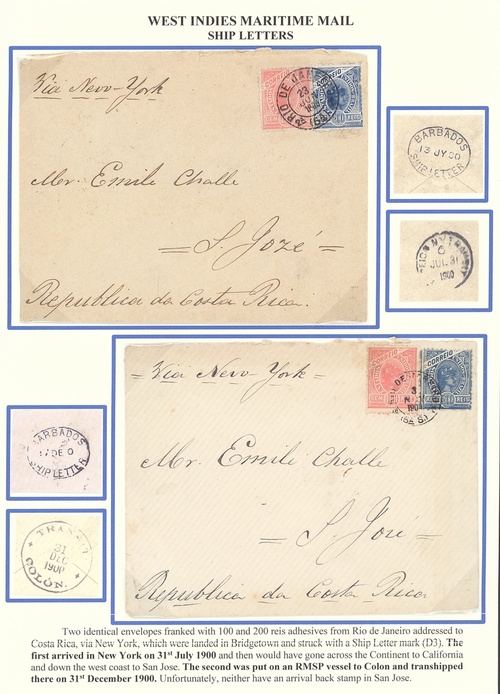 WEST INDIES MARITIME MAIL
SHIP LETTERS
Via New-York
RIO DE JANEIRO
23
Mr. Emile Challe
= S. José =
Republica da Costa Rica.
BARBADOS
13 JY 00
SHIP LETTER
N.Y.
JUL 31
1900
= Via New York =
CORREIO
REIS
3
190
Mr. Emile Challe
= S. José =
Republica da Costa Rica
BARBADOS
17 DE 0
SHIP LETTER
TRANSITO
31
DEC
1900
COLÓN.
Two identical envelopes franked with 100 and 200 reis adhesives from Rio de Janeiro addressed to
Costa Rica, via New York, which were landed in Bridgetown and struck with a Ship Letter mark (D3). The
first arrived in New York on 31st July 1900 and then would have gone across the Continent to California
and down the west coast to San Jose. The second was put on an RMSP vessel to Colon and transhipped
there on 31st December 1900. Unfortunately, neither have an arrival back stamp in San Jose.